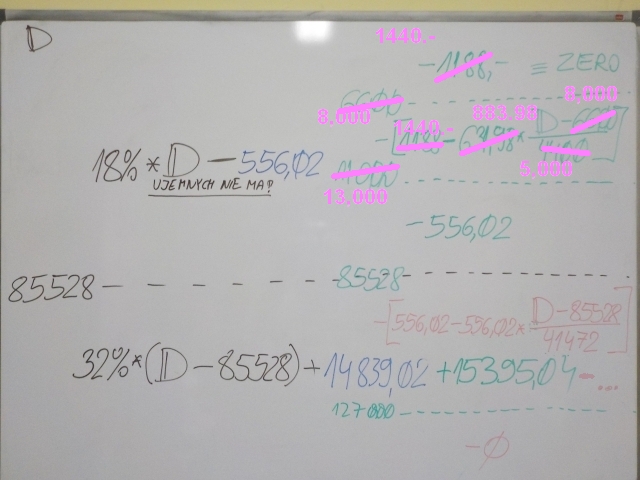 D
1440.-
-1188,- ≡ ZERO
6600
8.000
8,000
1440.- 883.98 D-6600
-[1188-631,98* 4400]
11000
5,000
13.000
18% * D - 556,02
UJEMNYCH NIE MA!?
-556,02
85528
85528
-[556,02-556,02* D-85528
41472]
32%*(D-85528)+14839,02 +15395,04-...
127000
-0